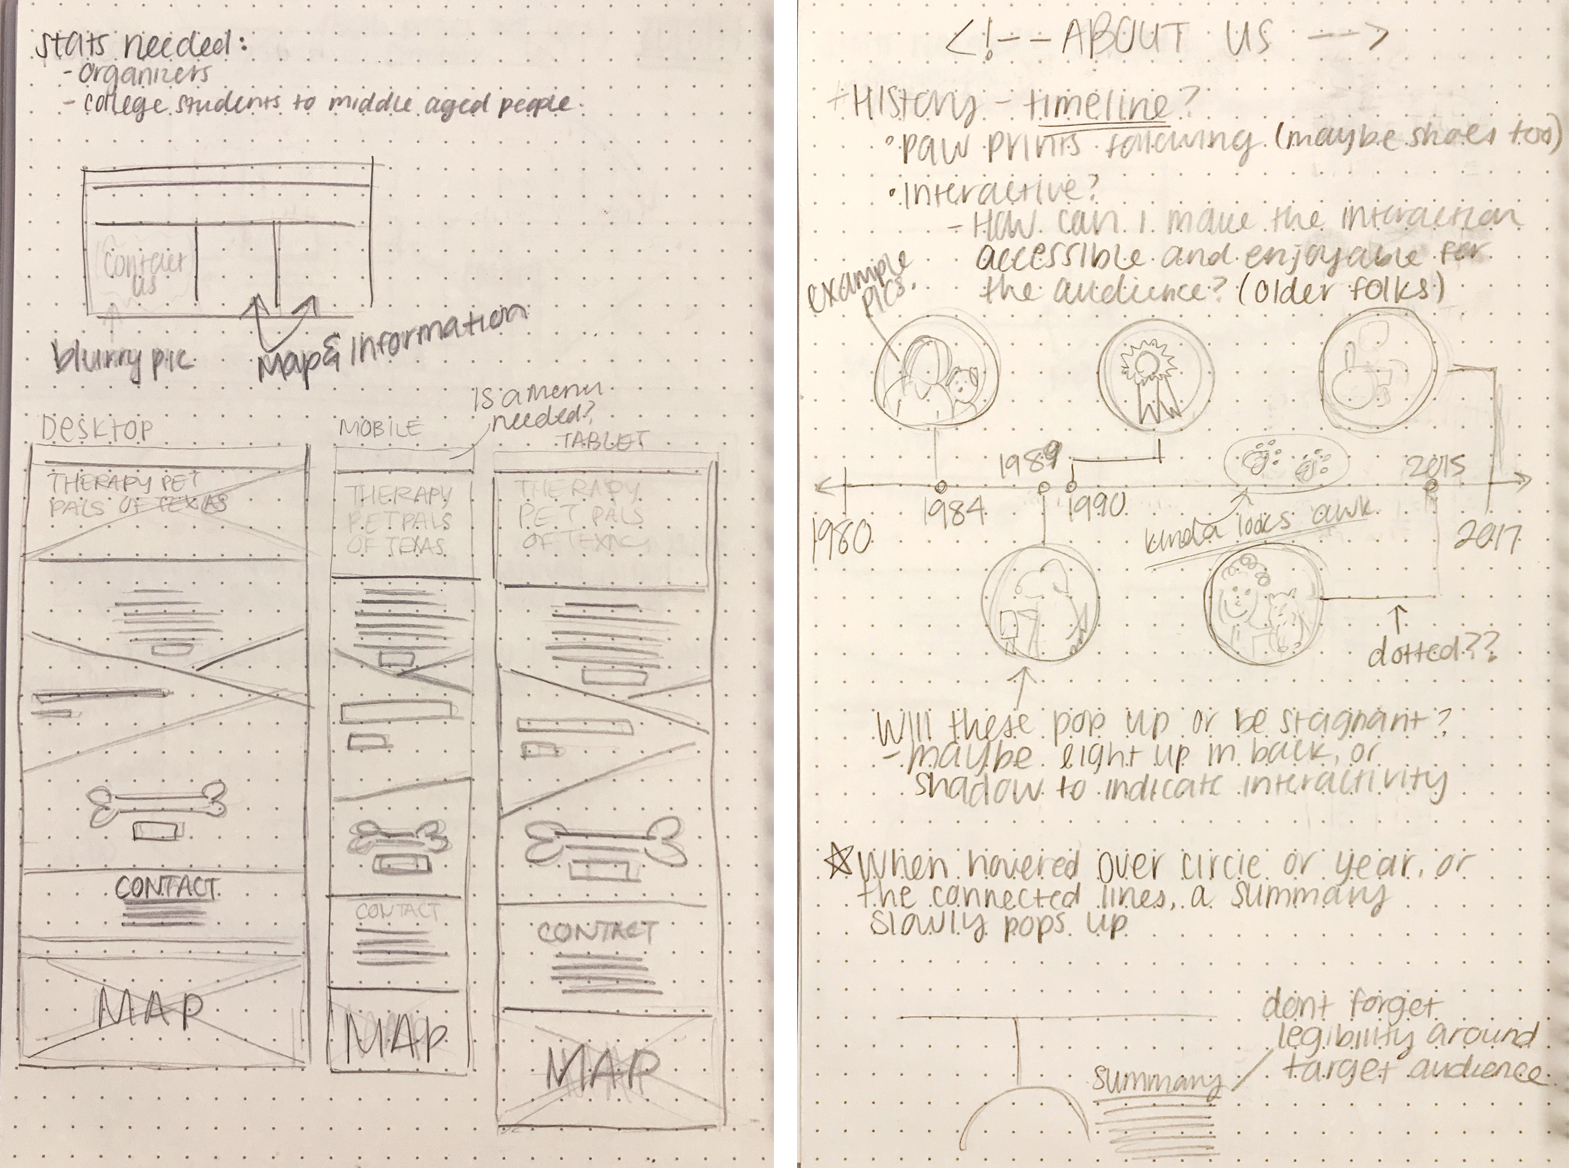 stats needed:
- organizers
- college students to middle aged people.
Contact
us
blurry pic
Map & Information
Desktop
THERAPY PET
PALS OF TEXAS
CONTACT
MAP
MOBILE
Is a menu
needed?
THERAPY
PET PALS
OF TEXAS
CONTACT
MAP
TABLET
THERAPY
PET PALS
OF TEXAS
CONTACT
MAP
<!-- ABOUT US -->
+ History - timeline?
• paw prints following (maybe shoes too)
• Interactive?
- How can I make the interaction
accessible and enjoyable for
the audience? (older folks)
example
pics.
1980
1984
1989
1990
2015
2017
kinda looks awk
dotted??
Will these pop up or be stagnant?
- maybe light up in back, or
shadow to indicate interactivity
☆ When hovered over circle or year, or
the connected lines, a summary
slowly pops up
dont forget
legibility around
target audience
summary